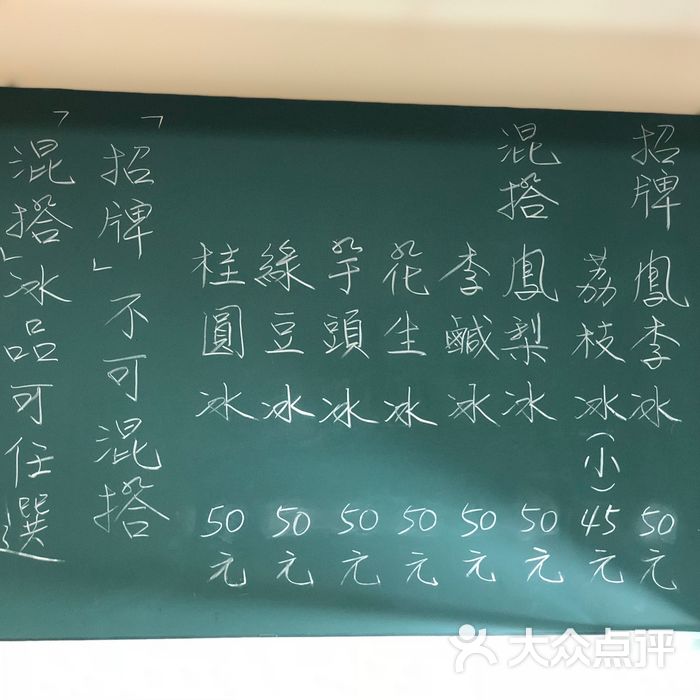 招牌 鳳李冰 50元
荔枝冰(小) 45元
混搭 鳳梨冰 50元
李鹹冰 50元
花生冰 50元
芋頭冰 50元
綠豆冰 50元
桂圓冰 50元
「招牌」不可混搭
「混搭」冰品可任選
大众点评